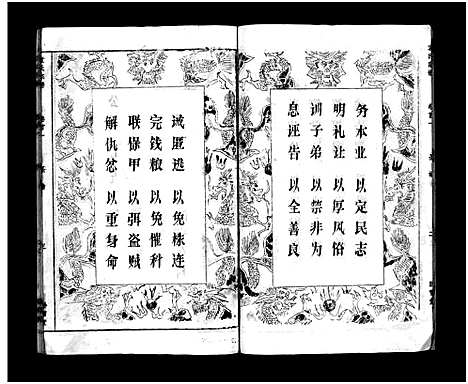 务本业 以定民志
明礼让 以厚风俗
训子弟 以禁非为
息诬告 以全善良
诫匿逃 以免株连
完钱粮 以免催科
联保甲 以弭盗贼
解仇忿 以重身命